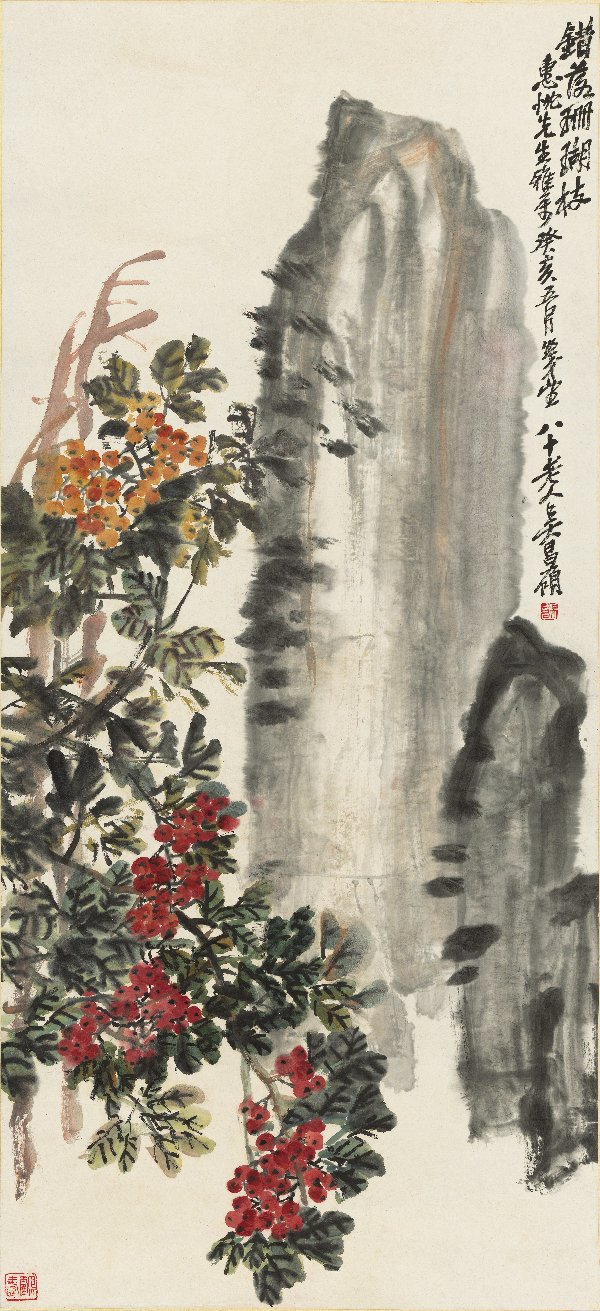 錯落珊瑚枝
惠忱先生雅屬癸亥五月八十老人吳昌碩